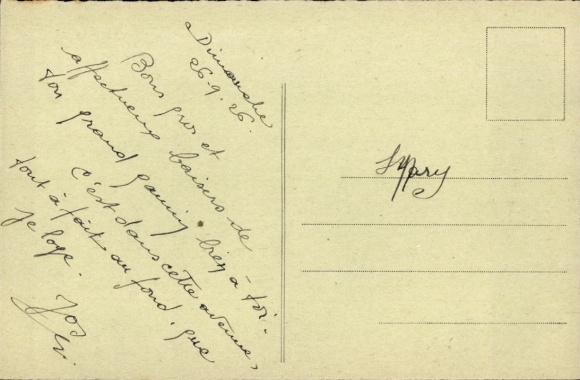 Dimanche
26.9.26.
Bons gros et
affectueux baisers de
ton grand gamin, bien à toi.
C'est dans cette avenue,
tout à fait au fond, que
je loge.
Jos
Mary